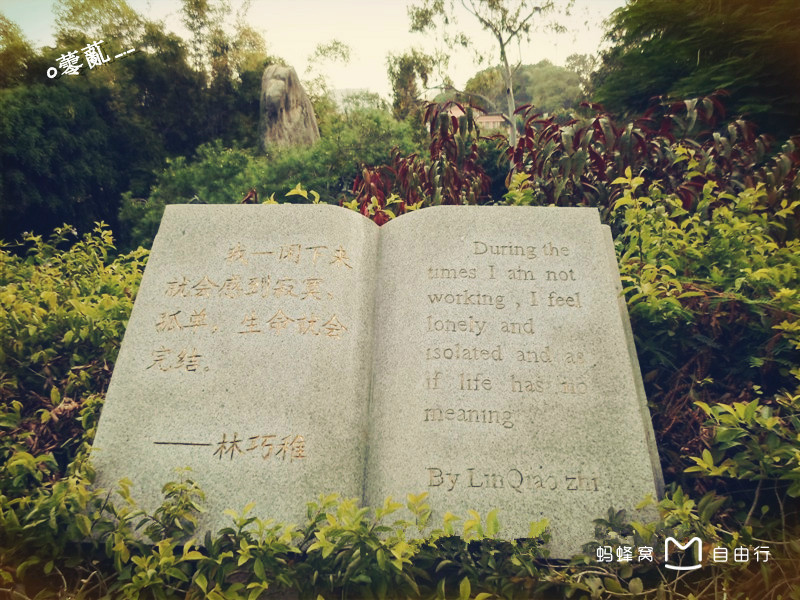 我一闲下来
就会感到寂寞、
孤单。生命就会
完结。
——林巧稚
During the
times I am not
working , I feel
lonely and
isolated and as
if life has no
meaning
By Lin Qiao zhi
蚂蜂窝 自由行